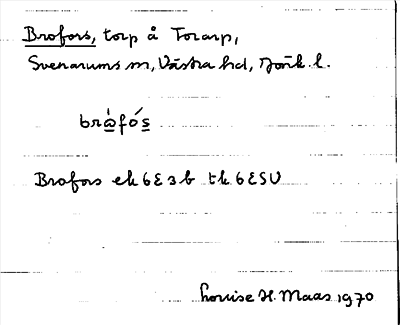 Brofors, torp å Torarp,
Svenarums sn, Västra hd, Jönk. l.
bråfós
Brofors ek 6E3b tk 6ESV
Louise H. Maas 1970